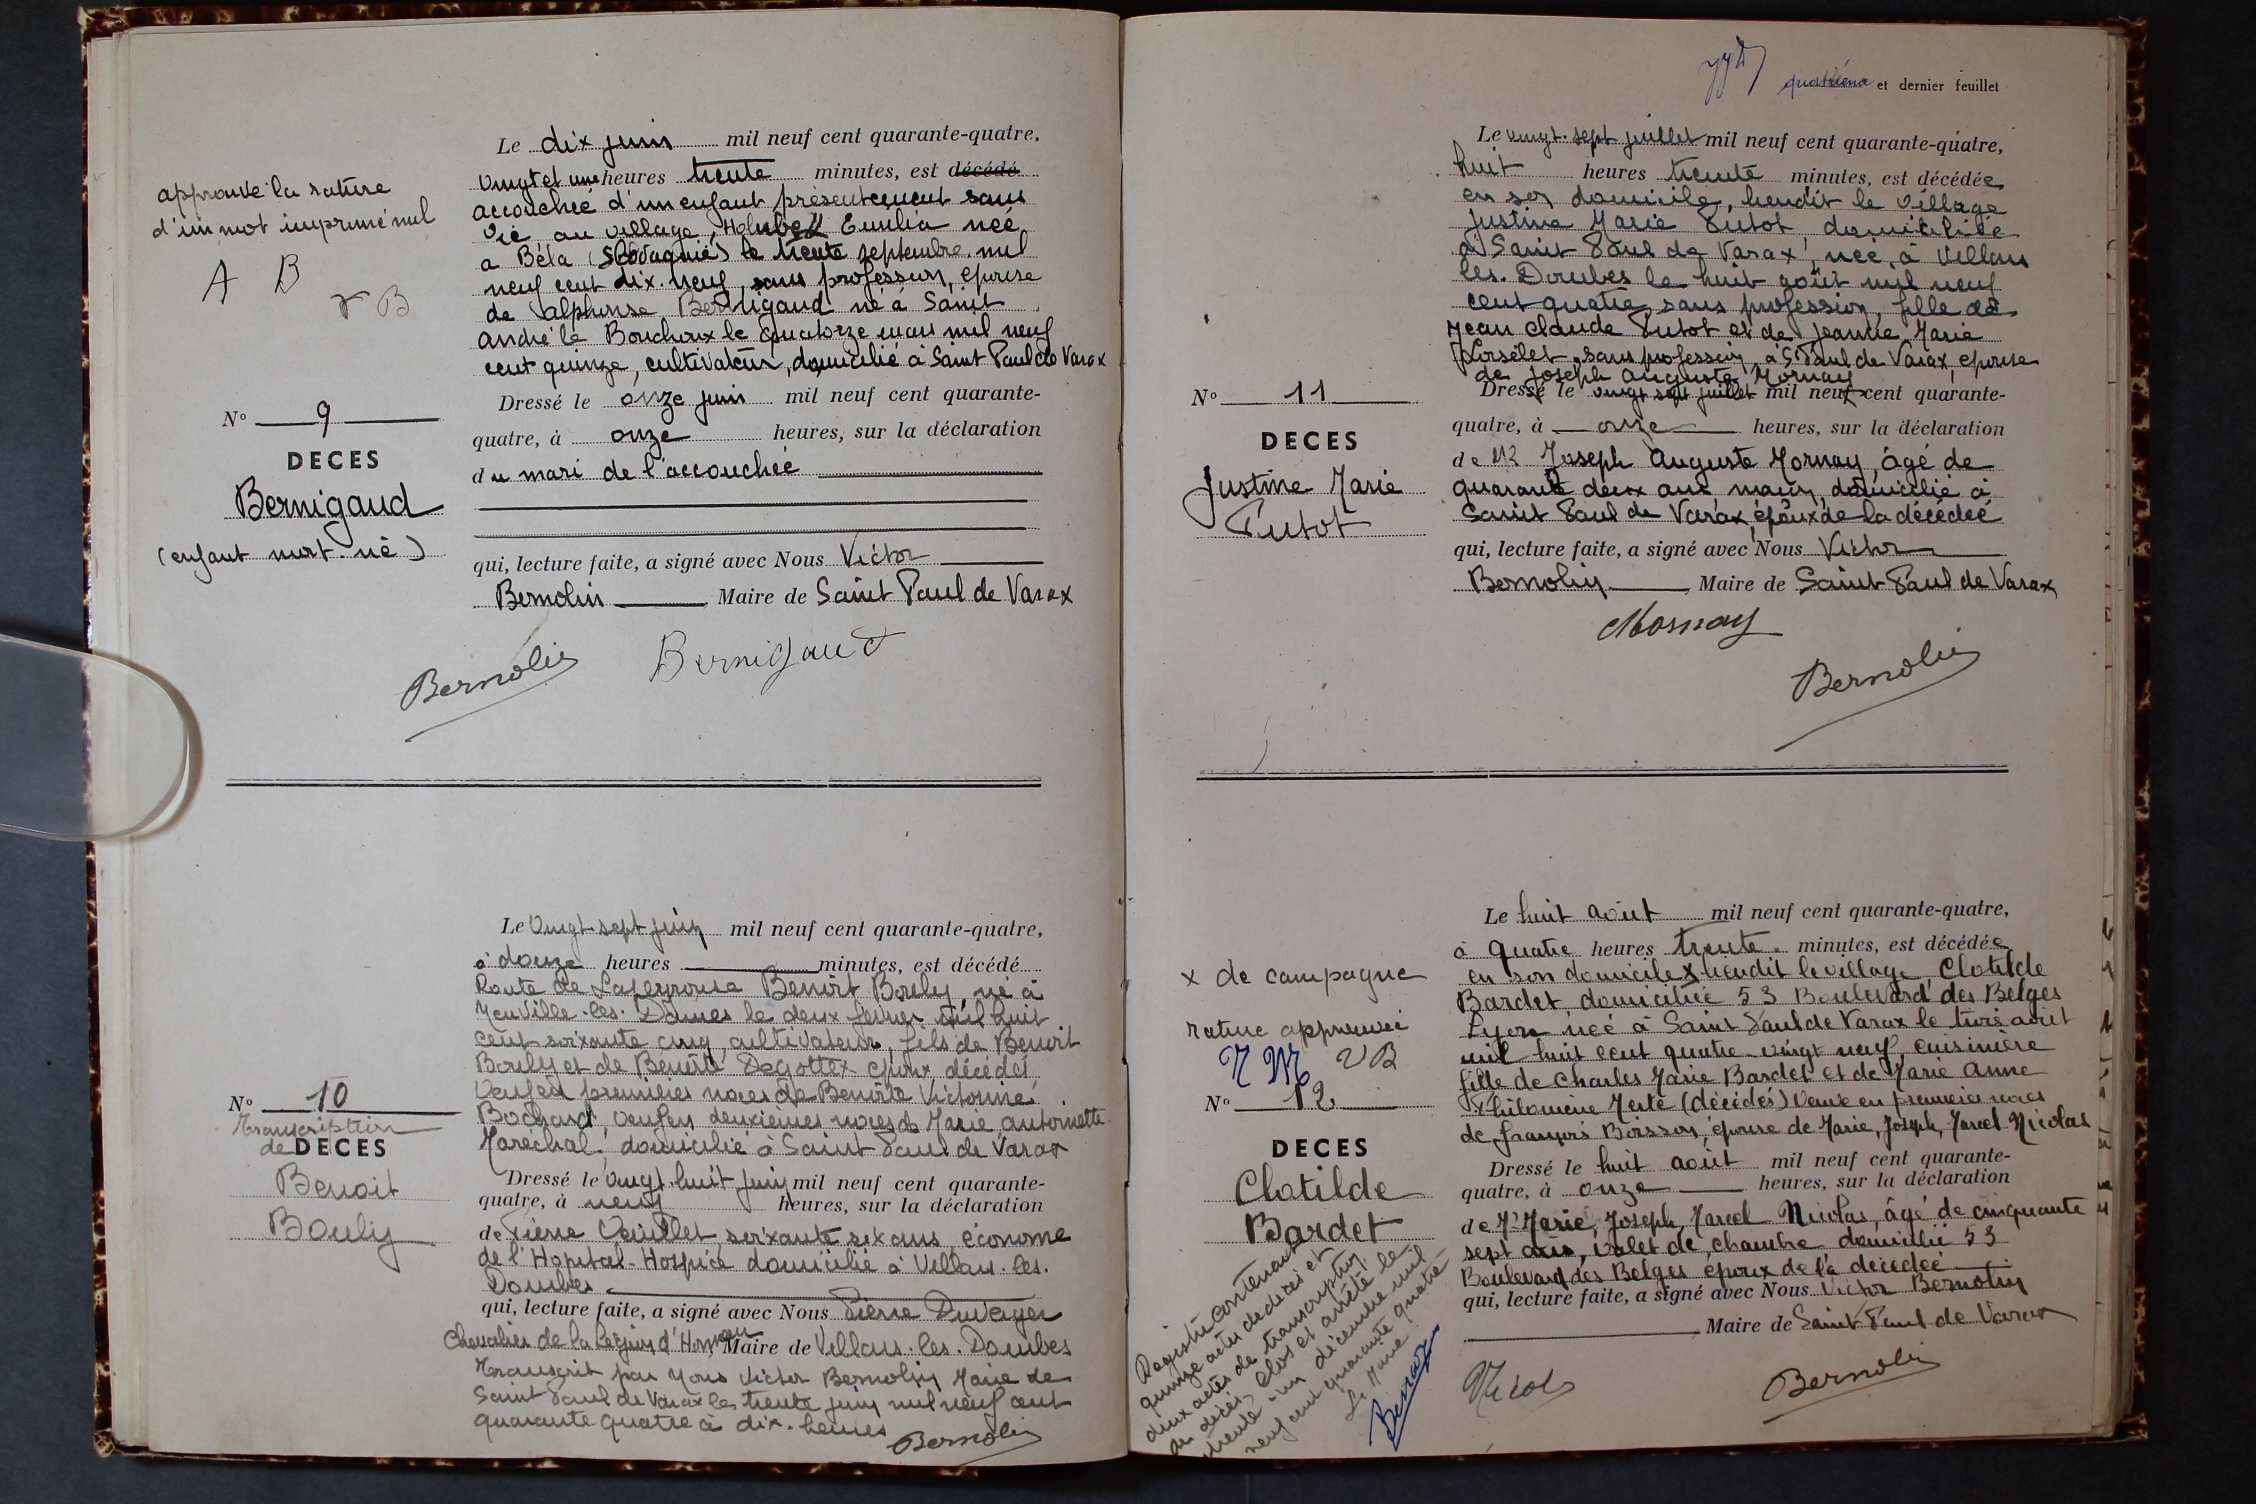 approuvé la rature
d'un mot imprimé nul
A B
V B
Nº 9
DECES
Bernigaud
(enfant mort-né)
Le dix juin mil neuf cent quarante-quatre,
vingt et une heures trente minutes, est décédé
accouchée d'un enfant présentement sans
vie au village, Emilia née
a Béla (Slovaquie) le trente septembre mil
neuf cent dix-neuf, sans profession, épouse
de Alphonse Bernigaud né à Saint
André le Bouchoux le quatorze mars mil neuf
cent quinze, cultivateur, domicilié à Saint Paul de Varax
Dressé le onze juin mil neuf cent quarante-
quatre, à onze heures, sur la déclaration
du mari de l'accouchée
qui, lecture faite, a signé avec Nous Victor
Bernolin Maire de Saint Paul de Varax
Bernolin Bernigaud
Nº 10
Transcription
de DECES
Benoit
Bouly
Le vingt-sept juin mil neuf cent quarante-quatre,
à douze heures minutes, est décédé
Route de Lapeyrouse Benoît Bouly, né à
Neuville-les-Dames le deux février mil huit
cent soixante cinq, cultivateur, fils de Benoit
Bouly et de Benoîte Degottex époux décédés
Veuf en premières noces de Benoîte Victorine
Bochard, veuf en deuxièmes noces de Marie Antoinette
Maréchal, domicilié à Saint Paul de Varax
Dressé le vingt-huit juin mil neuf cent quarante-
quatre, à neuf heures, sur la déclaration
de Pierre Veuillet soixante six ans, économe
de l'Hôpital-Hospice domicilié à Villars-les-
Dombes
qui, lecture faite, a signé avec Nous Pierre Duverger
Chevalier de la Légion d'Honneur, Maire de Villars-les-Dombes
Transcrit par Nous Victor Bernolin Maire de
Saint Paul de Varax les trente juin mil neuf cent
quarante quatre à dix-heures
Bernolin
quatrième et dernier feuillet
Nº 11
DECES
Justine Marie
Putot
Le vingt-sept juillet mil neuf cent quarante-quatre,
huit heures trente minutes, est décédée
en son domicile, lieudit le village
Justine Marie Putot domiciliée
à Saint Paul de Varax, née à Villars
les-Dombes le huit août mil neuf
cent quatre, sans profession, fille de
Jean Claude Putot et de Jeanne Marie
Loiselet, sans profession, à St Paul de Varax, épouse
de Joseph Auguste Mornay
Dressé le vingt sept juillet mil neuf cent quarante-
quatre, à onze heures, sur la déclaration
de Mr Joseph Auguste Mornay, âgé de
quarante deux ans, domicilié à
Saint Paul de Varax, époux de la décédée
qui, lecture faite, a signé avec Nous Victor
Bernolin Maire de Saint-Paul de Varax
Mornay
Bernolin
x de campagne
rature approuvée
N M VB
Nº 12
DECES
Clotilde
Bardet
Le huit août mil neuf cent quarante-quatre,
à quatre heures trente minutes, est décédée
en son domicile x lieudit le village, Clotilde
Bardet, domiciliée 53 Boulevard des Belges
Lyon née à Saint Paul de Varax le trois août
mil huit cent quatre-vingt neuf, cuisinière
fille de Charles Marie Bardet et de Marie Anne
Philomène (décédés) Veuve en premières noces
de François Boisson, épouse de Marie, Joseph, Marcel Nicolas
Dressé le huit août mil neuf cent quarante-
quatre, à onze heures, sur la déclaration
de Mr Marie, Joseph, Marcel Nicolas, âgé de cinquante
sept ans, valet de chambre domicilié 53
Boulevard des Belges époux de la décédée
qui, lecture faite, a signé avec Nous Victor Bernolin
Maire de Saint-Paul de Varax
Nicolas Bernolin
Registre contenant
quinze actes de décès et
deux actes de transcription
de décès, clos et arrêté le
trente-un décembre mil
neuf cent quarante quatre
Le Maire